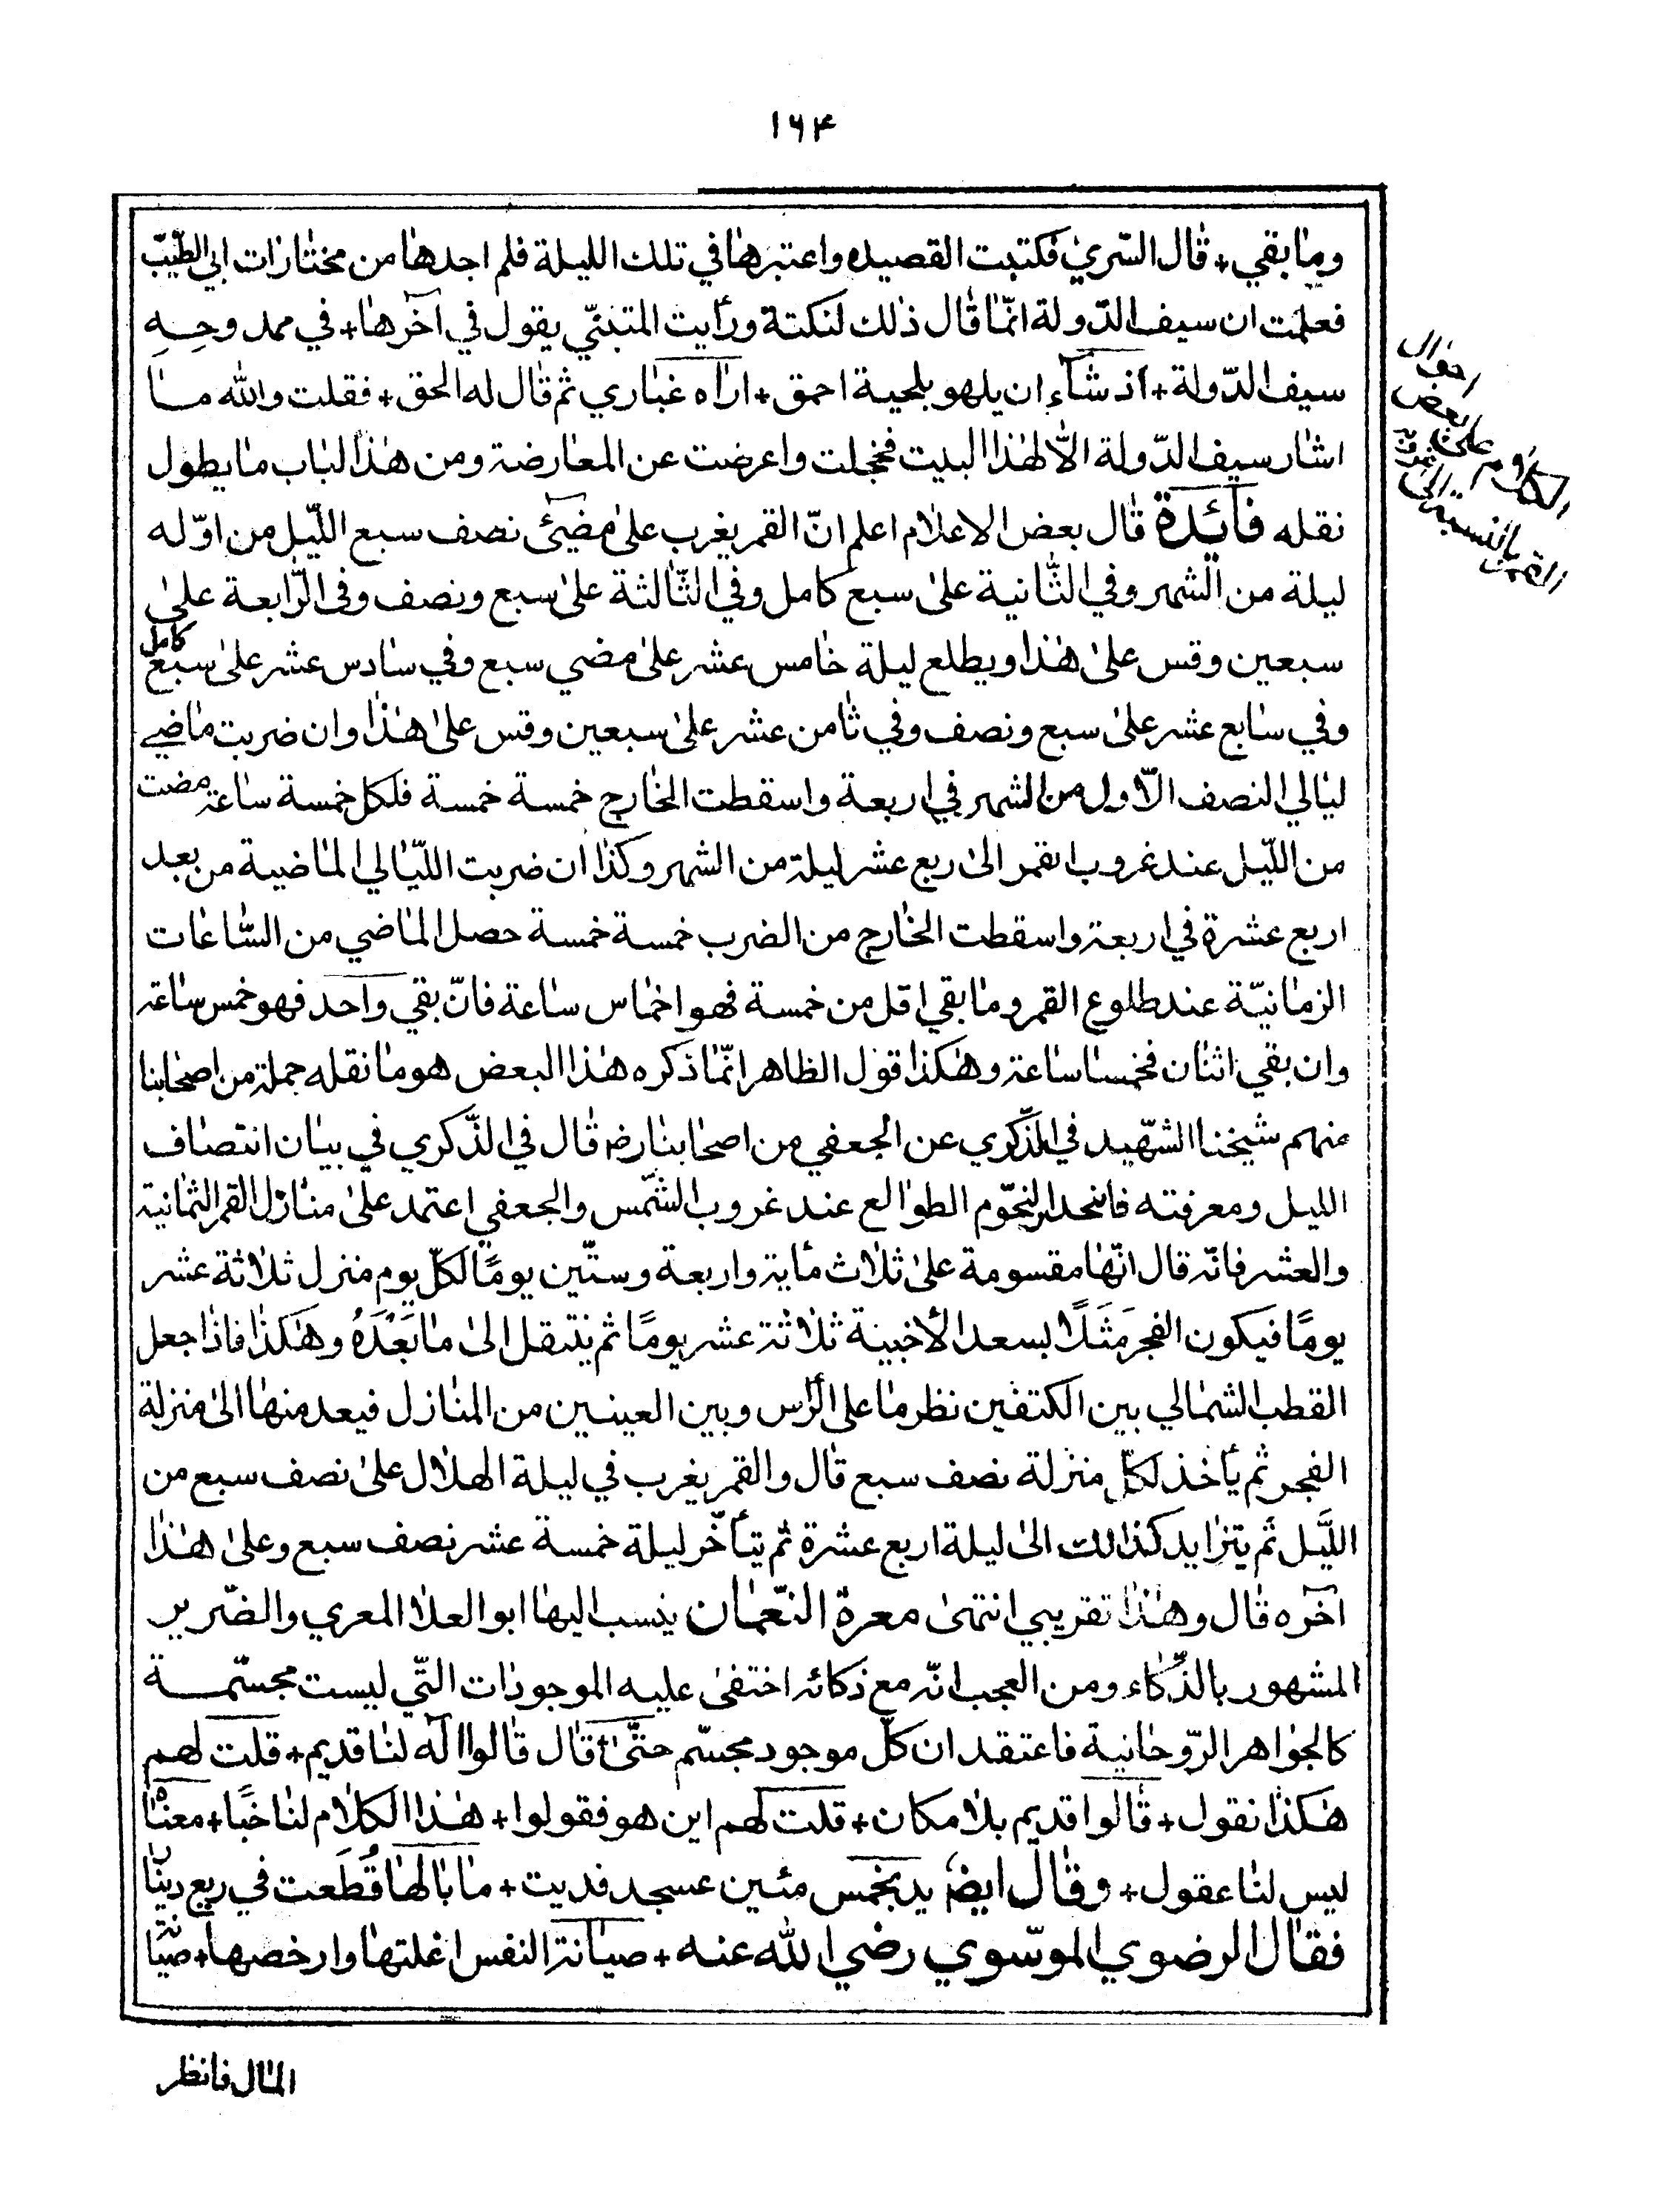 ١٦٤
وما بقي + قال السّري فكتبت القصيده واعتبرها في تلك الليلة فلم اجدها من مختارات ابي الطّيّب
فعلمت ان سيف الدّولة انّما قال ذلك لنكتة ورأيت المتنبّي يقول في آخرها + في ممدوحِهِ
سيف الدّولة + اذ شآء ان يلهو بلحية احمق + اراه غباري ثم قال له الحق + فقلت والله ما
اشار سيف الدّولة الّا لهذا البيت فخجلت واعرضت عن المعارضة ومن هذا الباب ما يطول
نقله فآئدة قال بعض الاعلام اعلم انّ القمر يغرب على مضيّ نصف سبع اللّيل من اوّله
ليلة من الشهر وفي الثّانية على سبع كامل وفي الثّالثة على سبع ونصف وفي الرّابعة على
سبعين وقس على هذا ويطلع ليلة خامس عشر على مضي سبع وفي سادس عشر على سبع كامل
وفي سابع عشر على سبع ونصف وفي ثامن عشر على سبعين وقس على هذا وان ضربت ماضي
ليالي النصف الاّول من الشهر في اربعة واسقطت الخارج خمسة خمسة فلكل خمسة ساعة مضت
من اللّيل عند غروب القمر الى ربع عشر ليلة من الشهر وكذا ان ضربت اللّيالي الماضية من بعد
اربع عشرة في اربعة واسقطت الخارج من الضرب خمسة خمسة حصل الماضي من السّاعات
الزمانيّة عند طلوع القمر وما بقي اقل من خمسة فهو اخماس ساعة فانّ بقي واحد فهو خمس ساعة
وان بقي اثنان فخمسا ساعة وهكذا قول الظاهر انّما ذكره هذا البعض هو ما نقله جملة من اصحابنا
منهم شيخنا الشهّيد في الذّكري عن الجعفي من اصحابنا رض قال في الذّكري في بيان انتصاف
الليل ومعرفته فانحدار النجّوم الطوالع عند غروب الشّمس والجعفي اعتمد على منازل القمر الثمانية
والعشر فانّه قال انّها مقسومة على ثلاث مأية واربعة وستّين يومًا لكلّ يوم منزل ثلاثة عشر
يومًا فيكون الفجر مَثَلًا بسعد الأخبية ثلاثة عشر يومًا ثم ينتقل الى ما بَعْدَهُ وهكذا فاذا جعل
القطب الشمالي بين الكتفين نظر ما على الرّأس وبين العينين من المنازل فيعد منها الى منزلة
الفجر ثم يأخذ لكلّ منزلة نصف سبع قال والقمر يغرب في ليلة الهلال على نصف سبع من
اللَّيل ثَم يتزايد كذالك الى ليلة اربع عشرة ثم يتأخّر ليلة خمسة عشر نصف سبع وعلى هذا
آخره قال وهذا تقريبي انتهى معرة النّعمان ينسب اليها ابو العلا المعري والضّرير
المشهور بالذّكاء ومن العجب انّه مع ذكائه اختفى عليه الموجودات التّي ليست مجسّمة
كالجواهر الرّوحانية فاعتقد ان كلّ موجود مجسّم حتّى قال قالوا اله لنا قديم + قلت لهم
هكذا نقول + قالوا قديم بلا مكان + قلت لهم اين هو فقولوا + هذا الكلام لنا خبًا + معنا
ليس لنا عقول + وقال ايض يد بخمس مئين عسجد فديت + ما بالها قُطَعت في ربع دينا
فقال الرضوي الموّسوي رضي الله عنه + صيانة النفس اغلتها وارخصها + صيانة
المال فانظر
احوال
بعض
الكروم على
القمر بالنسبة الى